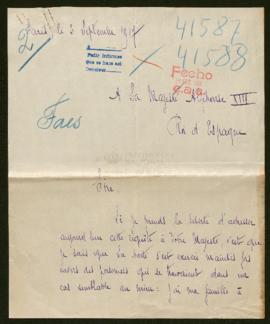 Paris le 2 Septembre 1917
41587
41588
2
Pedir informes
que se hace así
Fecho
A Sa Majesté Alphonse XIII
Roi d'Espagne
Faes
Sire
Si je prends la liberté d'adresser
aujourd'hui cette requête à Votre Majesté, c'est que
je sais que sa bonté s'est exercée maintes fois
envers des personnes qui se trouvaient dans un
cas semblable au mien : j'ai ma famille à